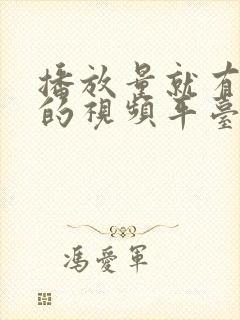 播放量就有
的視頻平臺
馮愛軍